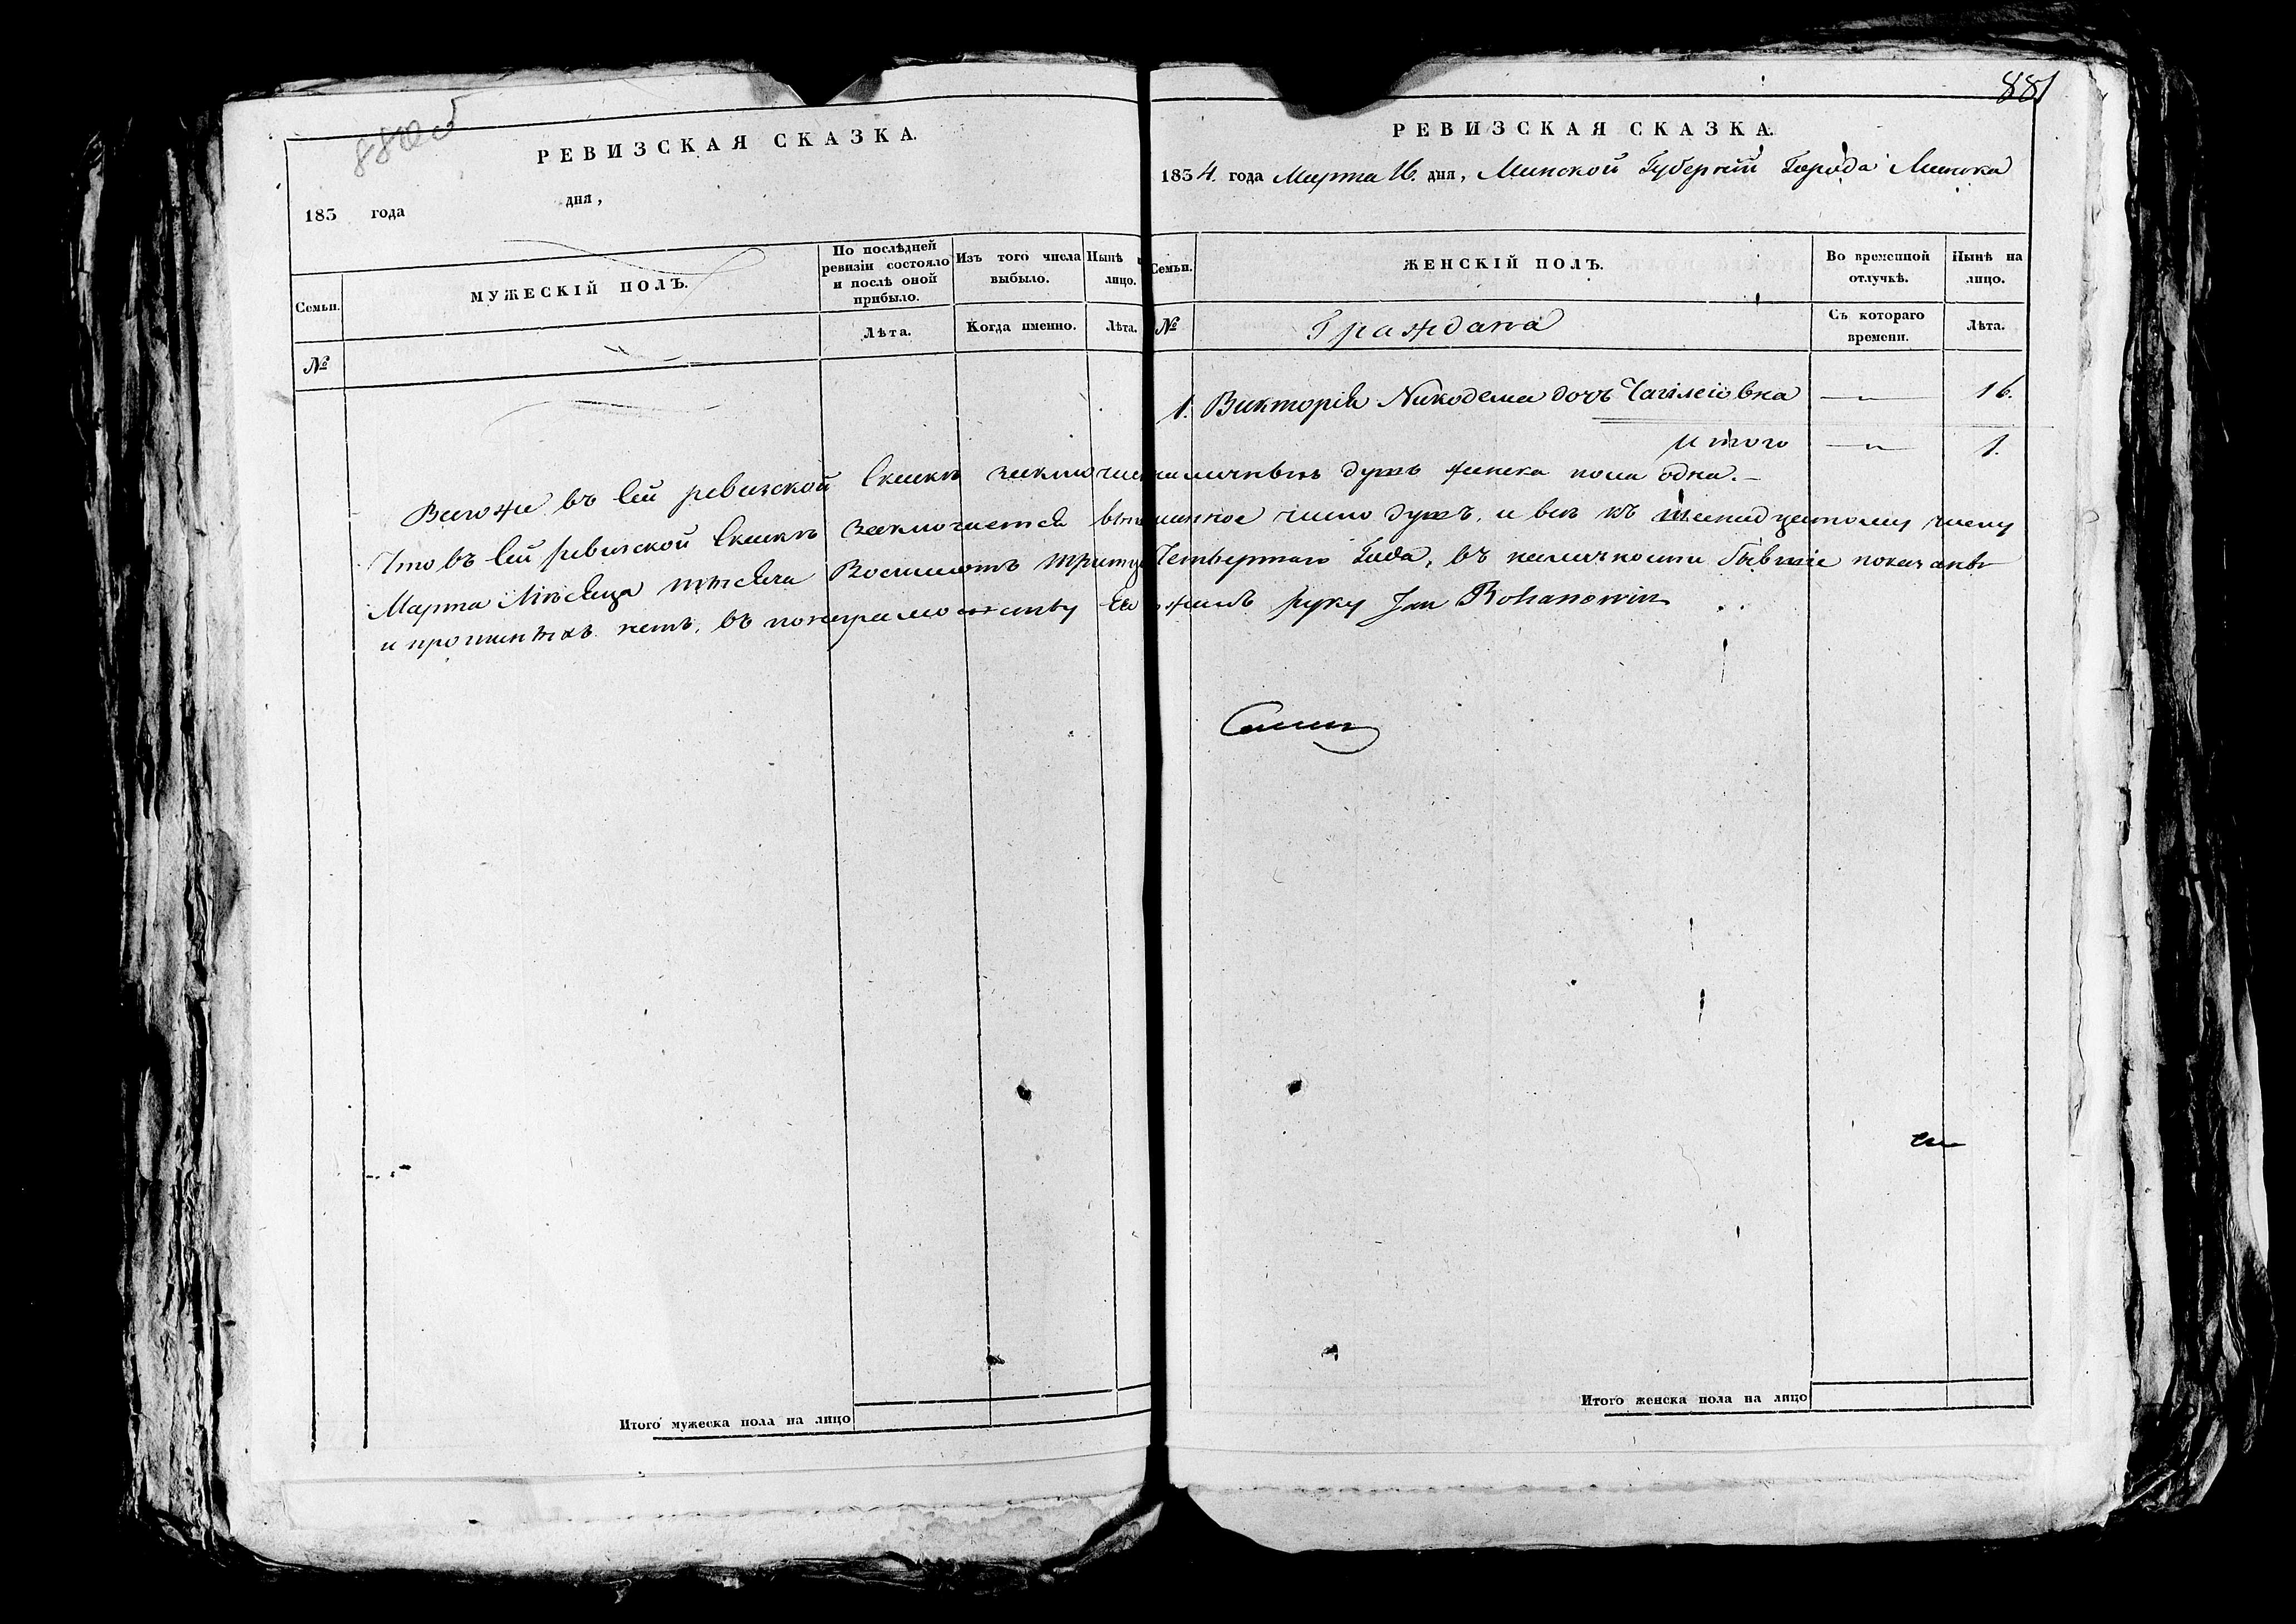 880 об
РЕВИЗСКАЯ СКАЗКА.
183 года дня,
Семьи.
МУЖЕСКІЙ ПОЛЪ.
По послѣдней ревизіи состояло и послѣ оной прибыло.
Изъ того числа выбыло.
Нынѣ
лицо.
№
Лѣта.
Когда именно.
Лѣта.
881
РЕВИЗСКАЯ СКАЗКА.
1834. года Марта 16. дня, Минской Губерніи Города Минска
Семьи.
ЖЕНСКІЙ ПОЛЪ.
Во временной отлучкѣ.
Нынѣ на лицо.
№
Граждана
Съ котораго времени.
Лѣта.
1. Викторія Никодема дочь 16.
итого 1.
Всего же въ сей ревизской скаскѣ душъ женска пола одна.
Что въ сей ревизской скаскѣ заключается число душъ, и всѣ къ числу
Марта Мѣсяца тысяча Восимсотъ Четвертаго Года, въ наличности бывшіе показаны
и нетъ, въ руку Jan
Итого мужеска пола на лицо
Итого женска пола на лицо